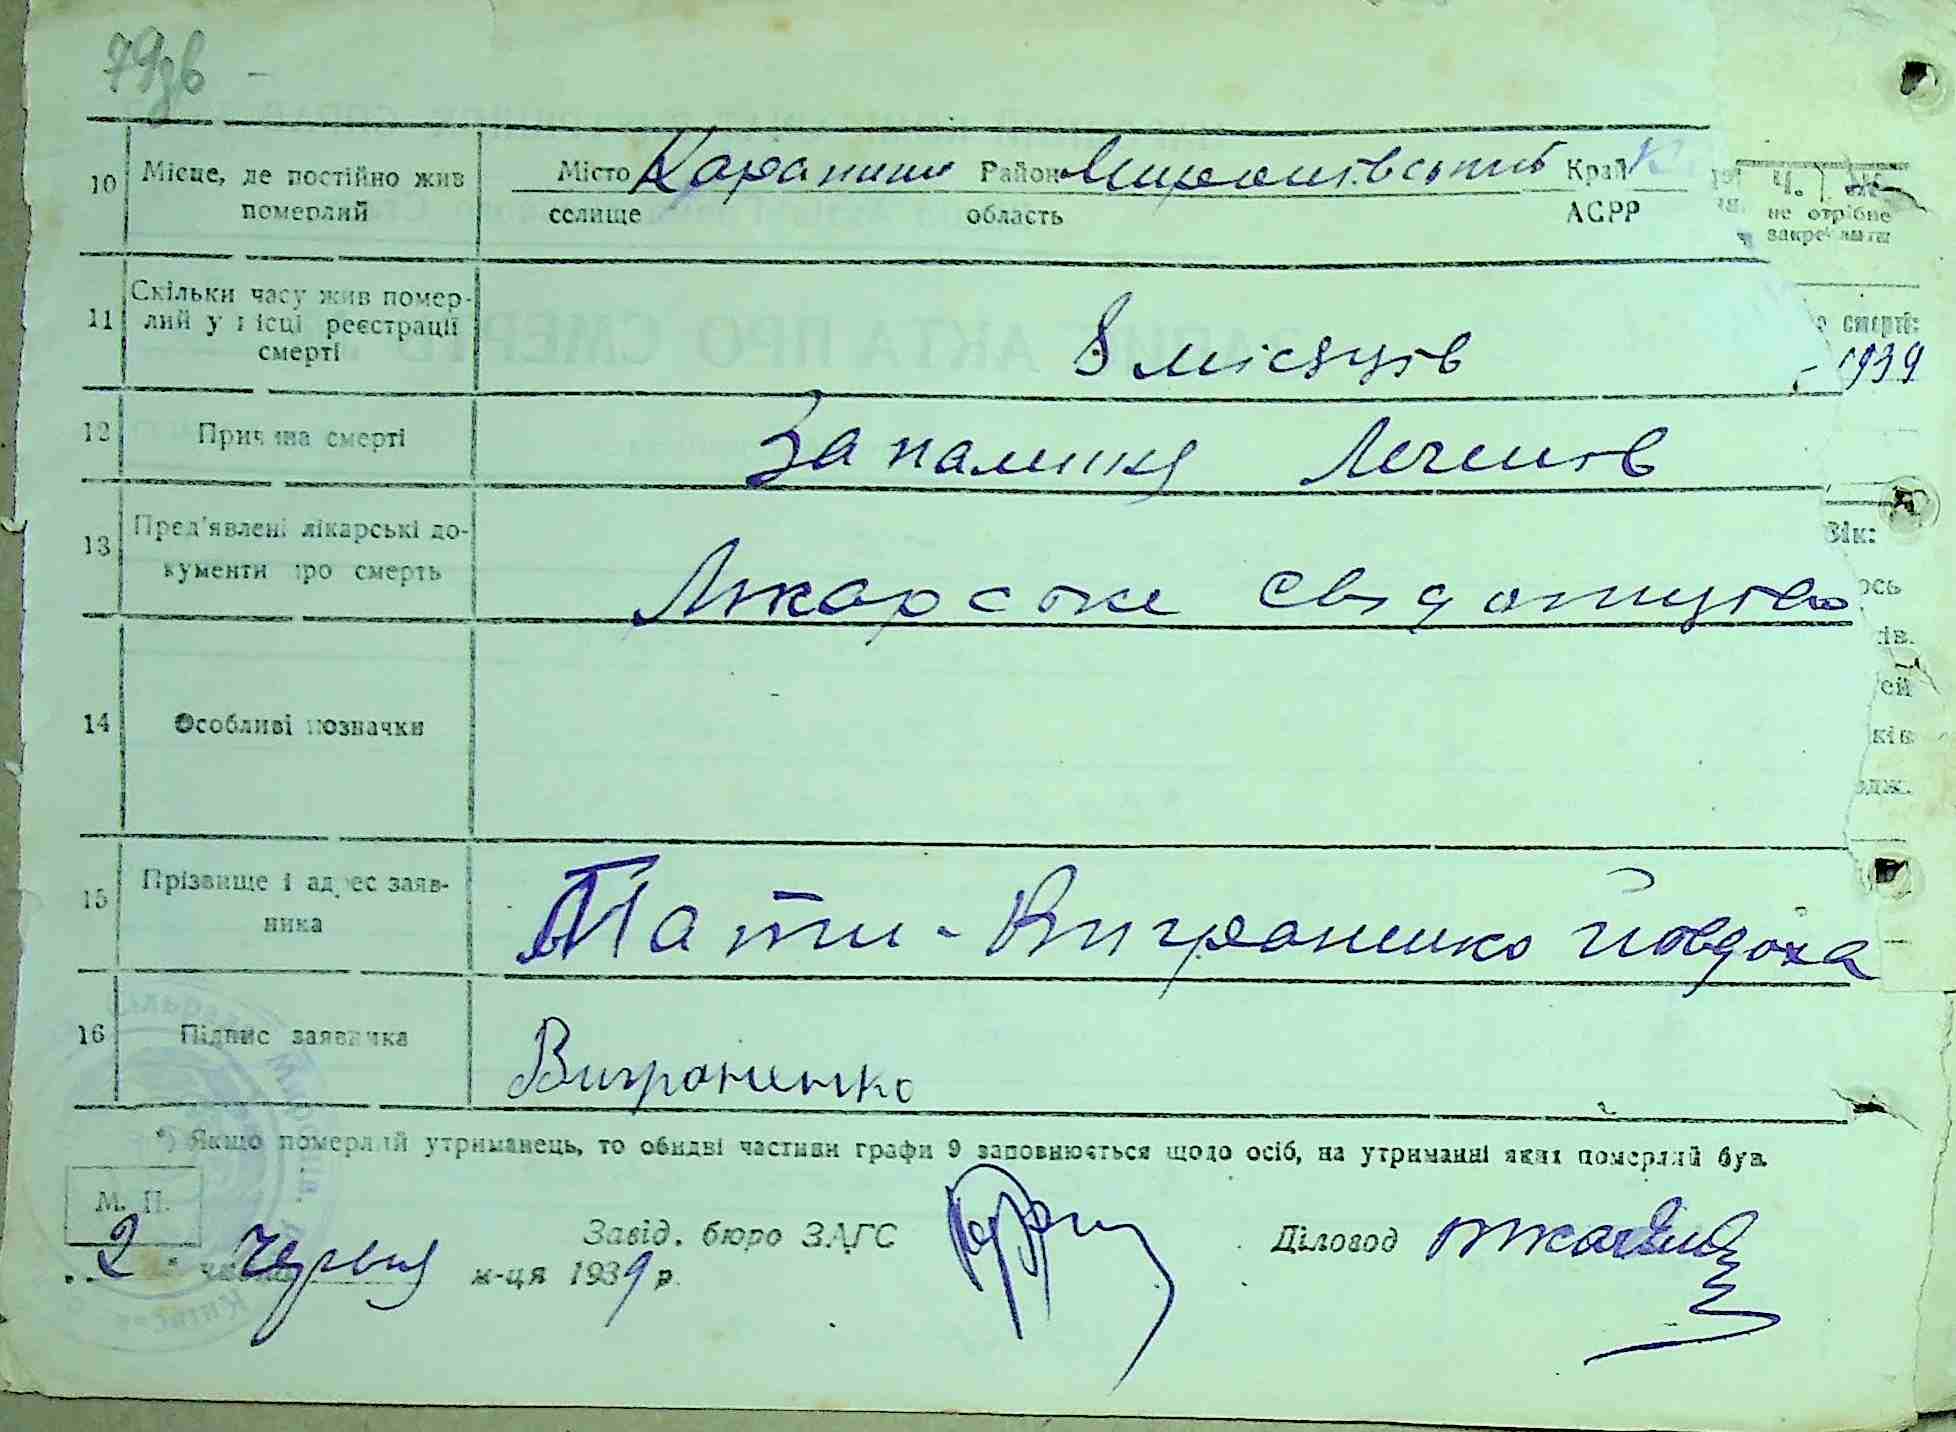 79зв
10 Місце, де постійно жив Місто Карапиши Район Миронівський Край К
померлий селище область АСРР
ч. ж.
не отрібне
закреслити
11 Скільки часу жив помер-
лий у місці реєстрації
смерті
8 місяців
смерті:
1939
12 Причина смерті Запалення Легенів
13 Пред'явлені лікарські до-
кументи про смерть
Лікарське свідоцтво
Вік:
ось
ків.
14 Особливі позначки
15 Прізвище і адрес заяв-
ника
Мати - Виграненко Йовдоха
16 Підпис заявника
Виграненко
*) Якщо померлий утриманець, то обидві частини графи 9 заповнюється щодо осіб, на утриманні яких померлий був.
М. П.
Завід. бюро ЗАГС Діловод
2 червня м-ця 1939 р.